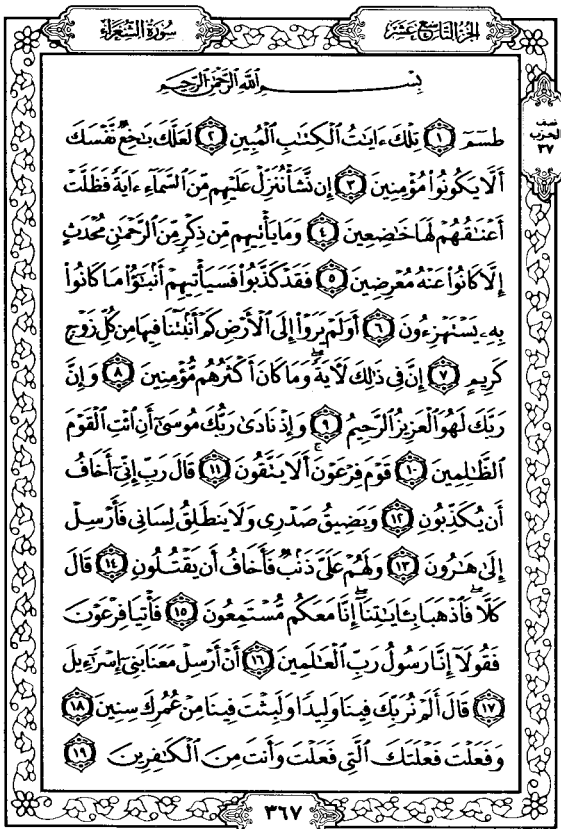 الجزء التاسع عشر
سورة الشعراء
نصف
الحزب
٣٧
بِسْمِ اللَّهِ الرَّحْمَٰنِ الرَّحِيمِ
طسٓمٓ ١ تِلْكَ ءَايَٰتُ ٱلْكِتَٰبِ ٱلْمُبِينِ ٢ لَعَلَّكَ بَٰخِعٌ نَّفْسَكَ
أَلَّا يَكُونُوا۟ مُؤْمِنِينَ ٣ إِن نَّشَأْ نُنَزِّلْ عَلَيْهِم مِّنَ ٱلسَّمَآءِ ءَايَةً فَظَلَّتْ
أَعْنَٰقُهُمْ لَهَا خَٰضِعِينَ ٤ وَمَا يَأْتِيهِم مِّن ذِكْرٍ مِّنَ ٱلرَّحْمَٰنِ مُحْدَثٍ
إِلَّا كَانُوا۟ عَنْهُ مُعْرِضِينَ ٥ فَقَدْ كَذَّبُوا۟ فَسَيَأْتِيهِمْ أَنۢبَٰٓؤُا۟ مَا كَانُوا۟
بِهِۦ يَسْتَهْزِءُونَ ٦ أَوَلَمْ يَرَوْا۟ إِلَى ٱلْأَرْضِ كَمْ أَنۢبَتْنَا فِيهَا مِن كُلِّ زَوْجٍ
كَرِيمٍ ٧ إِنَّ فِى ذَٰلِكَ لَءَايَةً ۖ وَمَا كَانَ أَكْثَرُهُم مُّؤْمِنِينَ ٨ وَإِنَّ
رَبَّكَ لَهُوَ ٱلْعَزِيزُ ٱلرَّحِيمُ ٩ وَإِذْ نَادَىٰ رَبُّكَ مُوسَىٰٓ أَنِ ٱئْتِ ٱلْقَوْمَ
ٱلظَّٰلِمِينَ ١٠ قَوْمَ فِرْعَوْنَ ۚ أَلَا يَتَّقُونَ ١١ قَالَ رَبِّ إِنِّىٓ أَخَافُ
أَن يُكَذِّبُونِ ١٢ وَيَضِيقُ صَدْرِى وَلَا يَنطَلِقُ لِسَانِى فَأَرْسِلْ
إِلَىٰ هَٰرُونَ ١٣ وَلَهُمْ عَلَىَّ ذَنۢبٌ فَأَخَافُ أَن يَقْتُلُونِ ١٤ قَالَ
كَلَّا ۖ فَٱذْهَبَا بِـَٔايَٰتِنَآ ۖ إِنَّا مَعَكُم مُّسْتَمِعُونَ ١٥ فَأْتِيَا فِرْعَوْنَ
فَقُولَآ إِنَّا رَسُولُ رَبِّ ٱلْعَٰلَمِينَ ١٦ أَنْ أَرْسِلْ مَعَنَا بَنِىٓ إِسْرَٰٓءِيلَ
١٧ قَالَ أَلَمْ نُرَبِّكَ فِينَا وَلِيدًا وَلَبِثْتَ فِينَا مِنْ عُمُرِكَ سِنِينَ ١٨
وَفَعَلْتَ فَعْلَتَكَ ٱلَّتِى فَعَلْتَ وَأَنتَ مِنَ ٱلْكَٰفِرِينَ ١٩
٣٦٧